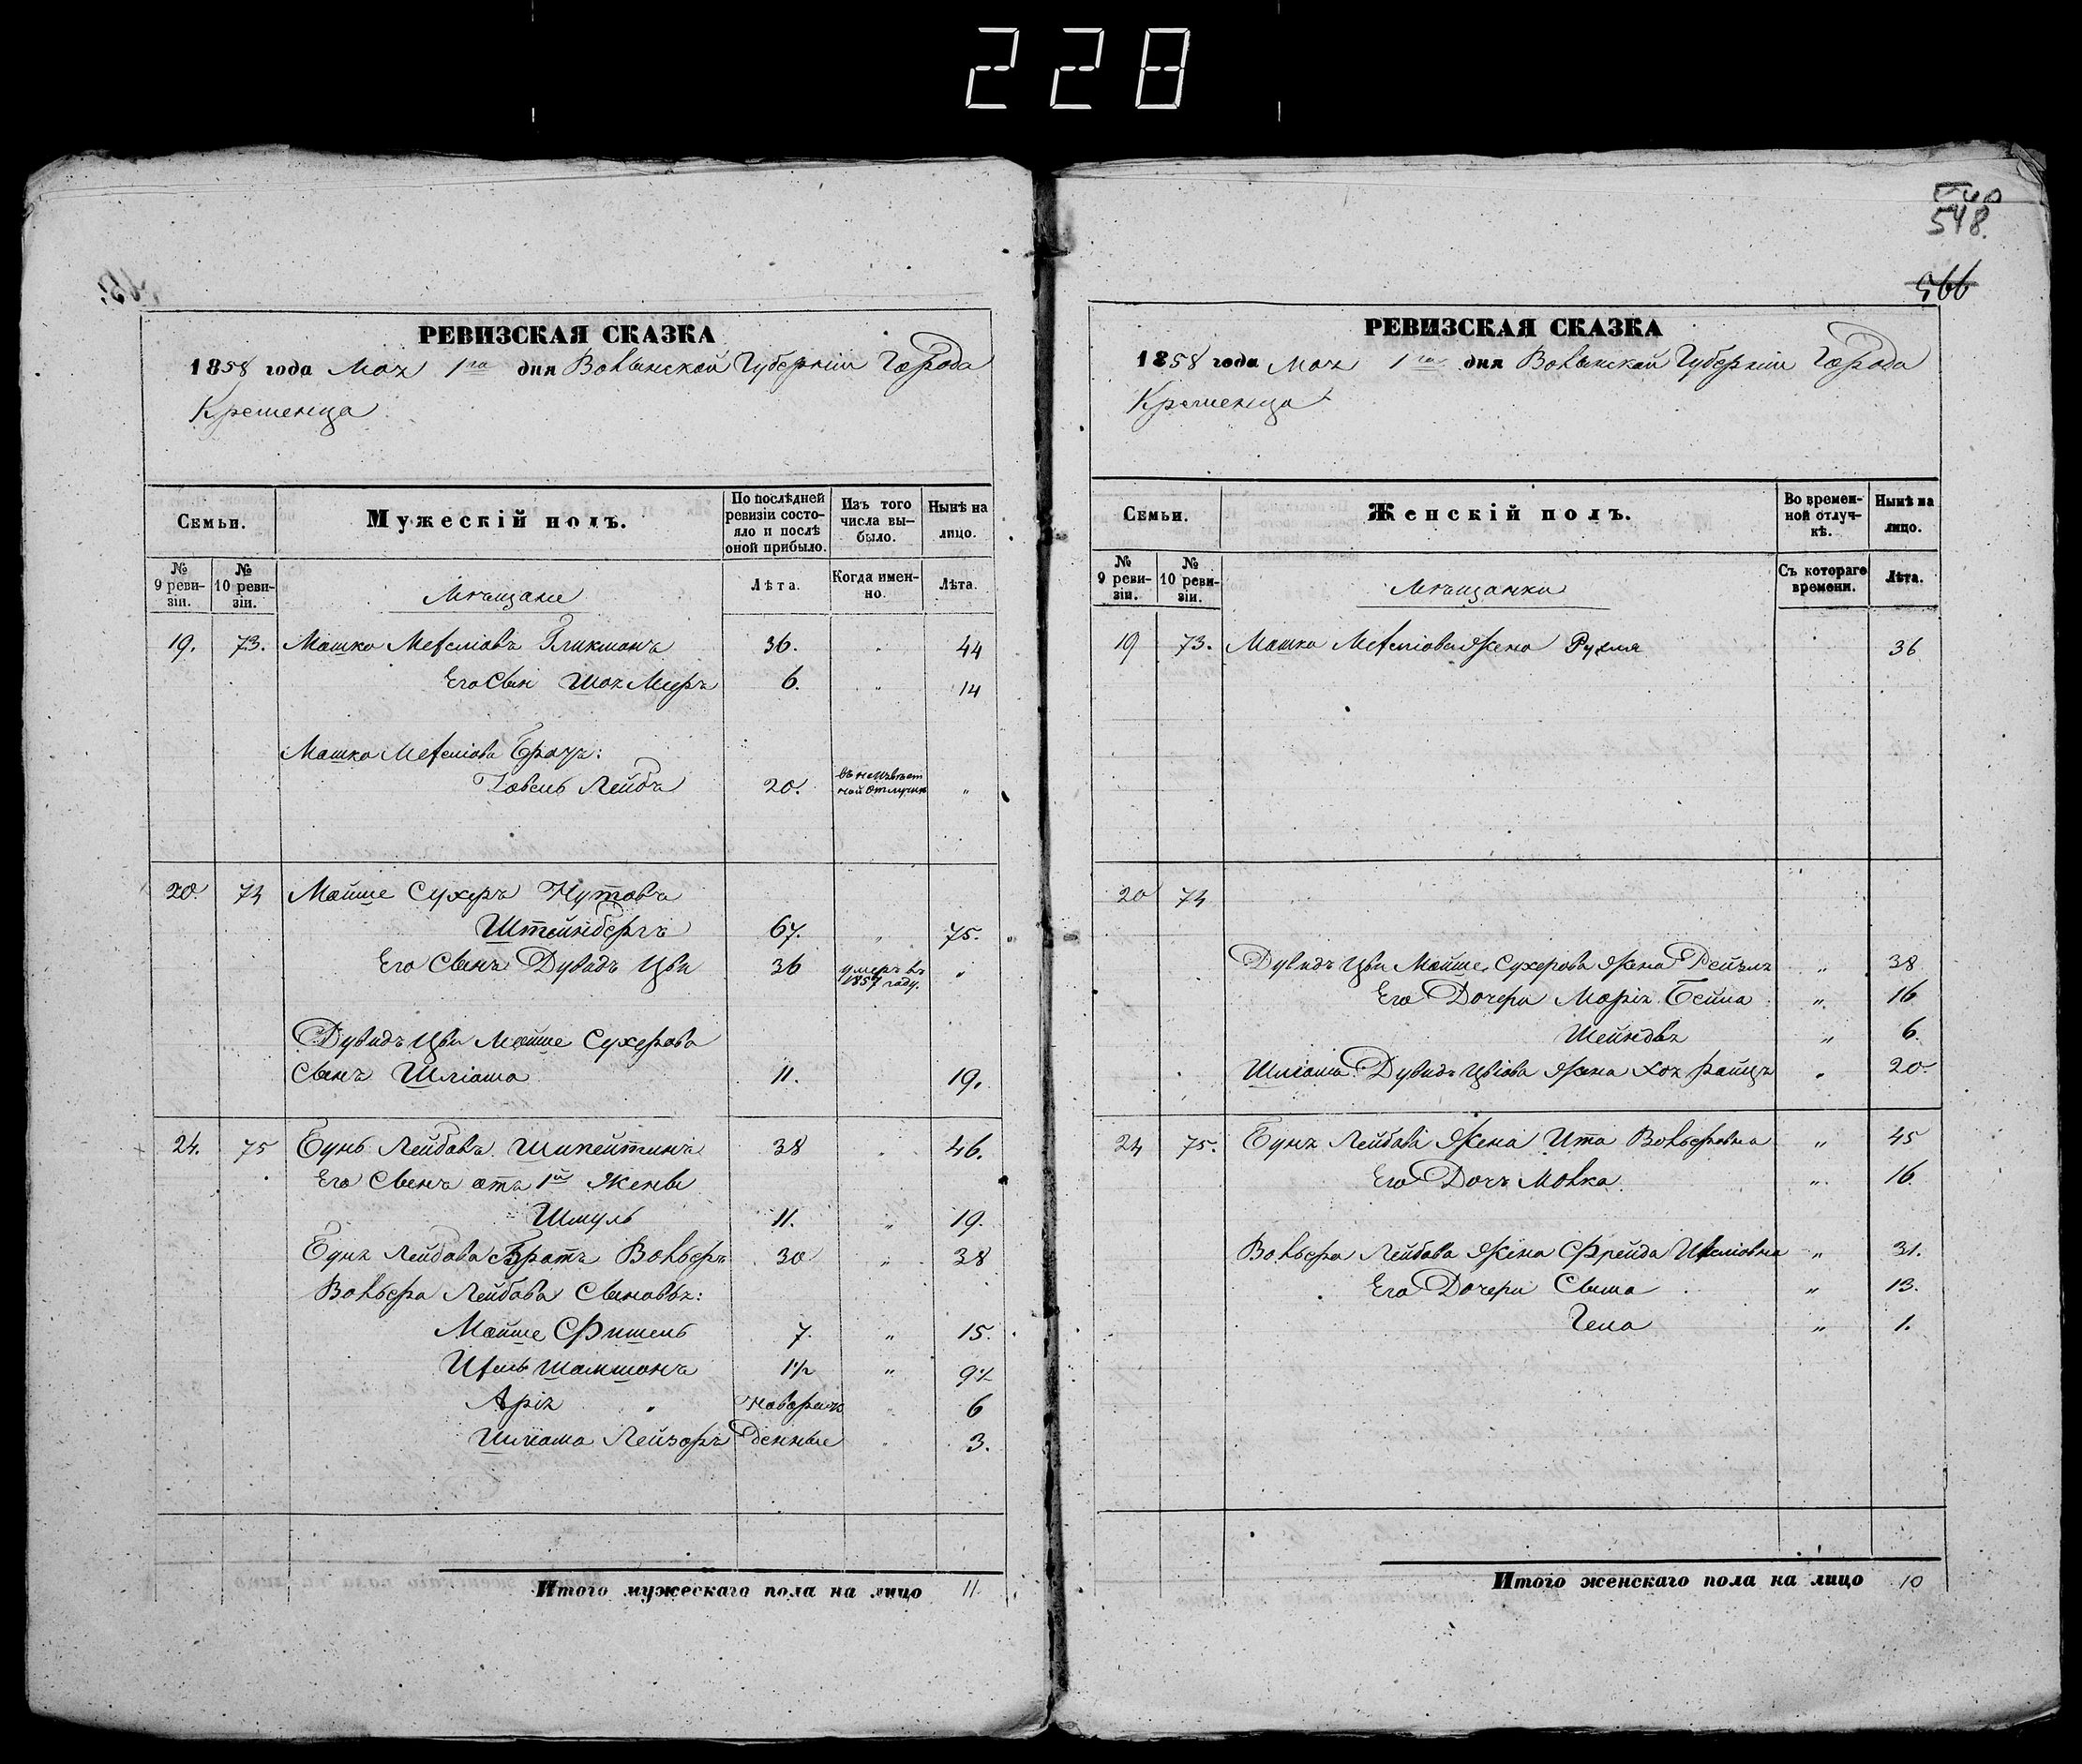 228
548.
566
РЕВИЗСКАЯ СКАЗКА
1858 года Мая 1го дня Волынской Губерніи Города
Кременца
Семьи.
Мужескій полъ.
По послѣдней ревизіи состояло и послѣ оной прибыло.
Изъ того числа выбыло.
Нынѣ на лицо.
№ 9 ревизіи.
№ 10 ревизіи.
Мѣщане
Лѣта.
Когда именно.
Лѣта.
19. 73. Машко Меселіовъ Гликманъ 36. " 44
Его Сынъ Шая Мееръ 6. " 14
Машко Меселіова Братъ:
Лейбъ 20. въ неизвѣстной отлучкѣ "
20. 74 Мойше Сухеръ Нутовъ
Штейнбергъ 67. " 75.
Его Сынъ Дувидъ Цви 36 умеръ въ 1857 году. "
Дувидъ Цви Мойше Сухерова
Сынъ Шліома 11. 19.
24. 75 Еунь Лейбовъ 38 " 46.
Его Сынъ отъ 1й Жены
Шмуль 11. " 19.
Лейбова Братъ Вольфъ 30 " 38
Лейбова Сыновья:
Мойше Фишель 7. " 15.
Шамшонъ 1½ " 9½
Арія новорож 6
Шліома Лейзоръ денные 3.
Итого мужескаго пола на лицо 11.
РЕВИЗСКАЯ СКАЗКА
1858 года Мая 1го дня Волынской Губерніи Города
Кременца
Семьи.
Женскій полъ.
Во временной отлучкѣ.
Нынѣ на лицо.
№ 9 ревизіи.
№ 10 ревизіи.
Мѣщанки
Съ котораго времени.
Лѣта.
19 73. Машко Меселіова Жена Рухля 36
20 74
Дувидъ Цви Мойше Сухерова Жена Рейзля " 38
Его Дочери Марія Бейла " 16
Шейндля " 6
Шліома Дувидъ Цвіова Жена Хая " 20.
24 75. Лейбова Жена Ита " 45
Его Дочь Малка " 16
Лейбова Жена Фрейда " 31.
Его Дочери Сыма " 13.
" 1.
Итого женскаго пола на лицо 10